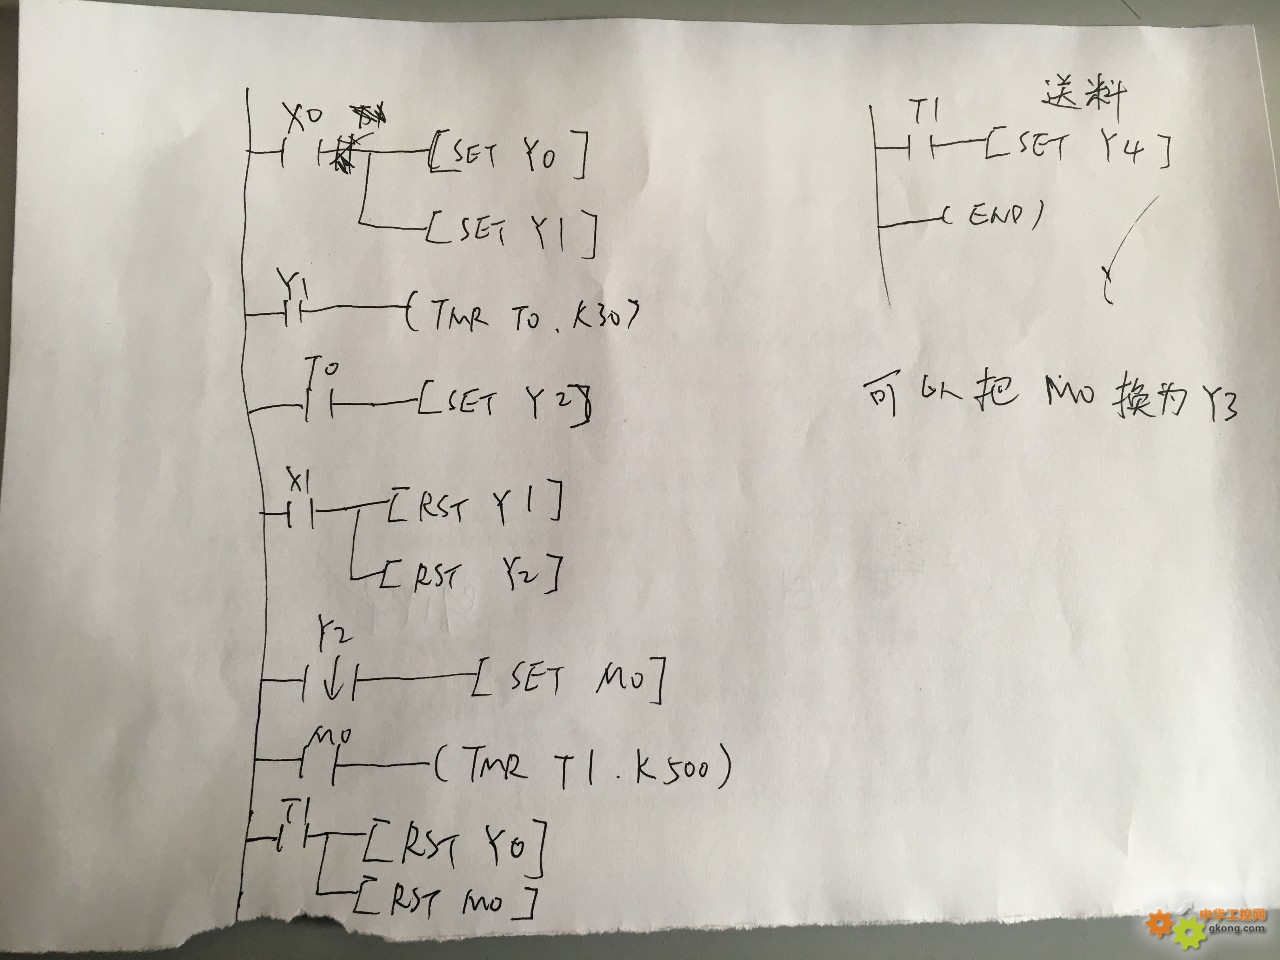 X0
[SET Y0]
[SET Y1]
Y1
(TMR T0. K30)
T0
[SET Y2]
X1
[RST Y1]
[RST Y2]
Y2
[SET M0]
M0
(TMR T1. K500)
T1
[RST Y0]
[RST M0]
送料
T1
[SET Y4]
(END)
可以把 M0 换为 Y3
中华工控网
gkong.com